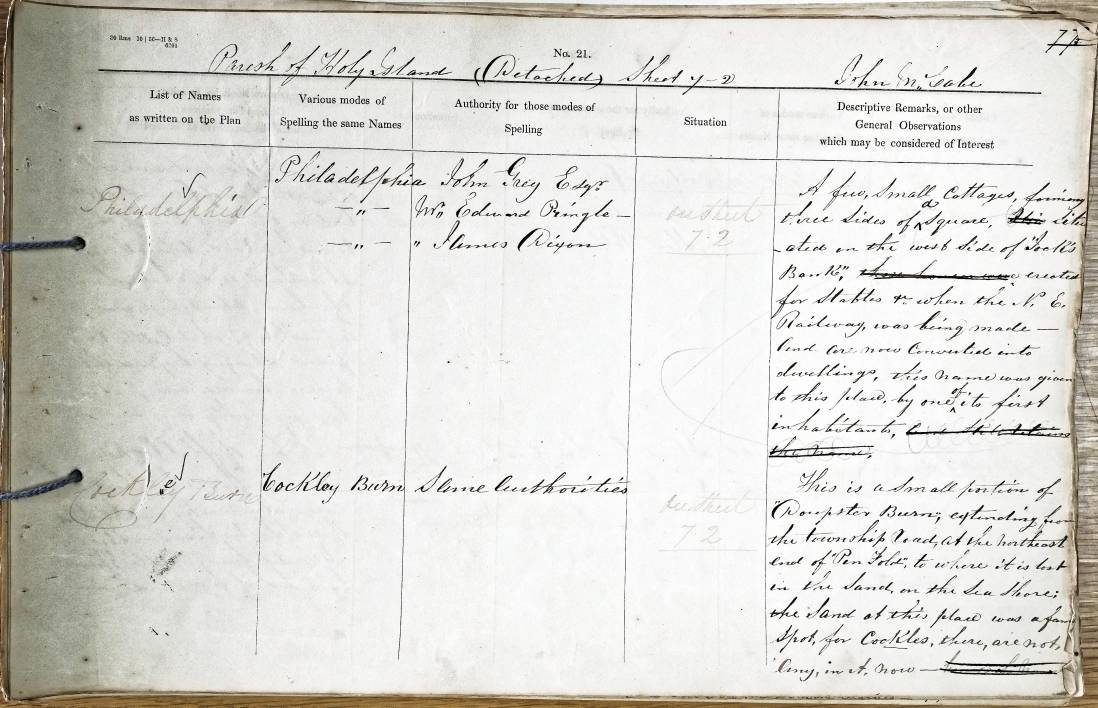 77
20 Rms 10 | 56—H & S
6205
No. 21.
Parish of Holy Island (Detached) Sheet 7-2
John McCabe
List of Names
as written on the Plan
Various modes of
Spelling the same Names
Authority for those modes of
Spelling
Situation
Descriptive Remarks, or other
General Observations
which may be considered of Interest
Philadelphia
Philadelphia
— „ —
— „ —
John Grey Esqr
Mr. Edward Pringle —
„ James Dixon
on sheet
7-2
A few, Small Cottages, forming
three sides of a Square, this Situ
-ated on the west side of "Jock's
Bank", these houses were erected
for Stables &c when the N. E.
Railway, was being made —
And are now Converted into
dwellings, this name was given
to this place, by one of its first
inhabitants, and still retains
the name.
Cockley Burn
e
Cockley Burn
Same Authorities
on sheet
7 2
This is a Small portion of
"Doupster Burn", extending from
the township road, at the northeast
end of "Pen Fold", to where it is lost
in the Sand, on the Sea Shore;
the Sand at this place was a
Spot, for Cockles, there, are not,
any, in it, now —